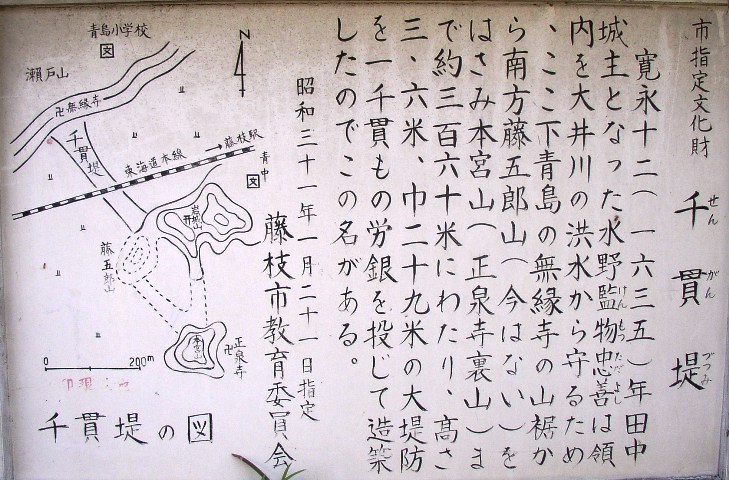 市指定文化財
千貫堤
せんがんづつみ
寛永十二(一六三五)年田中
城主となった水野監物忠善は領
けんもつただよし
内を大井川の洪水から守るため
、ここ下青島の無縁寺の山裾か
ら南方藤五郎山(今はない)を
はさみ本宮山(正泉寺裏山)ま
で約三百六十米にわたり、高さ
三、六米、巾二十九米の大堤防
を一千貫もの労銀を投じて造築
したのでこの名がある。
昭和三十一年一月二十一日指定
藤枝市教育委員会
N
青島小学校
文
瀬戸山
卍無縁寺
千貫堤
東海道本線
藤枝駅
青中
文
岩城山
藤五郎山
本宮山
卍正泉寺
0
200m
千貫堤の図